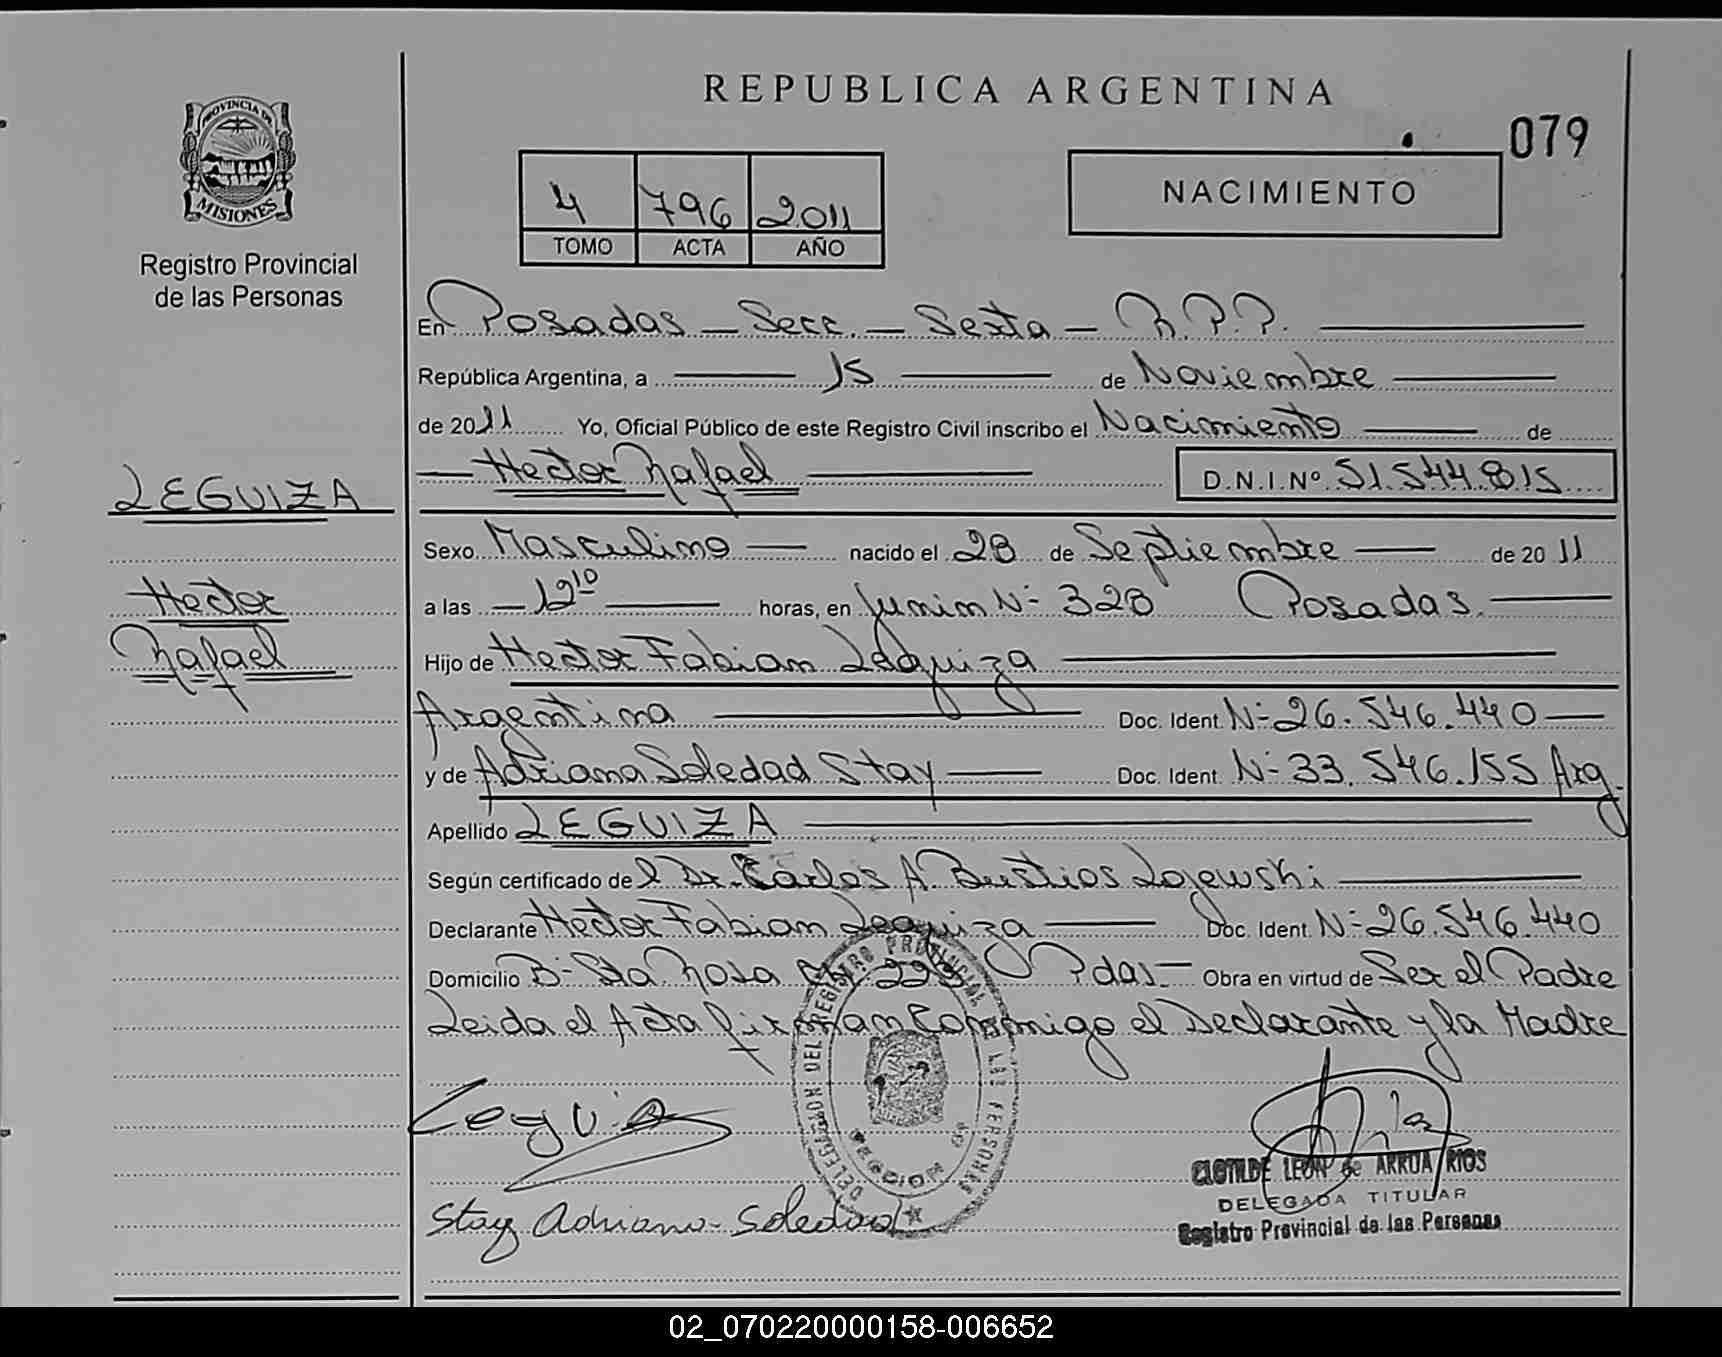 REPUBLICA ARGENTINA
079
PROVINCIA DE
MISIONES
Registro Provincial
de las Personas
4 796 2011
TOMO ACTA AÑO
NACIMIENTO
En Posadas - Secc. - Sexta - R.P.P.
República Argentina, a 15 de Noviembre
de 2011 Yo, Oficial Público de este Registro Civil inscribo el Nacimiento de
Hector Rafael D.N.I.Nº 51.544.815
LEGUIZA
Sexo Masculino nacido el 28 de Septiembre de 2011
Hector
a las 12 10 horas, en Junin Nº 328 Posadas.
Rafael
Hijo de Hector Fabian Leguiza
Argentina Doc. Ident. Nº 26.546.440
y de Adriana Soledad Stay Doc. Ident. Nº 33.546.155 Arg.
Apellido LEGUIZA
Según certificado del Dr. Carlos A. Bustios Lojewski
Declarante Hector Fabian Leguiza Doc. Ident. Nº 26.546.440
Domicilio Bº Sta. Rosa Pdas- Obra en virtud de Ser el Padre
Leida el Acta firman Conmigo el Declarante y la Madre
DELEGACION DEL REGISTRO PROVINCIAL DE LAS PERSONAS
Leguiza
CLOTILDE LEON de ARRUA RIOS
DELEGADA TITULAR
Registro Provincial de las Personas
Stay Adriana Soledad
02_070220000158-006652